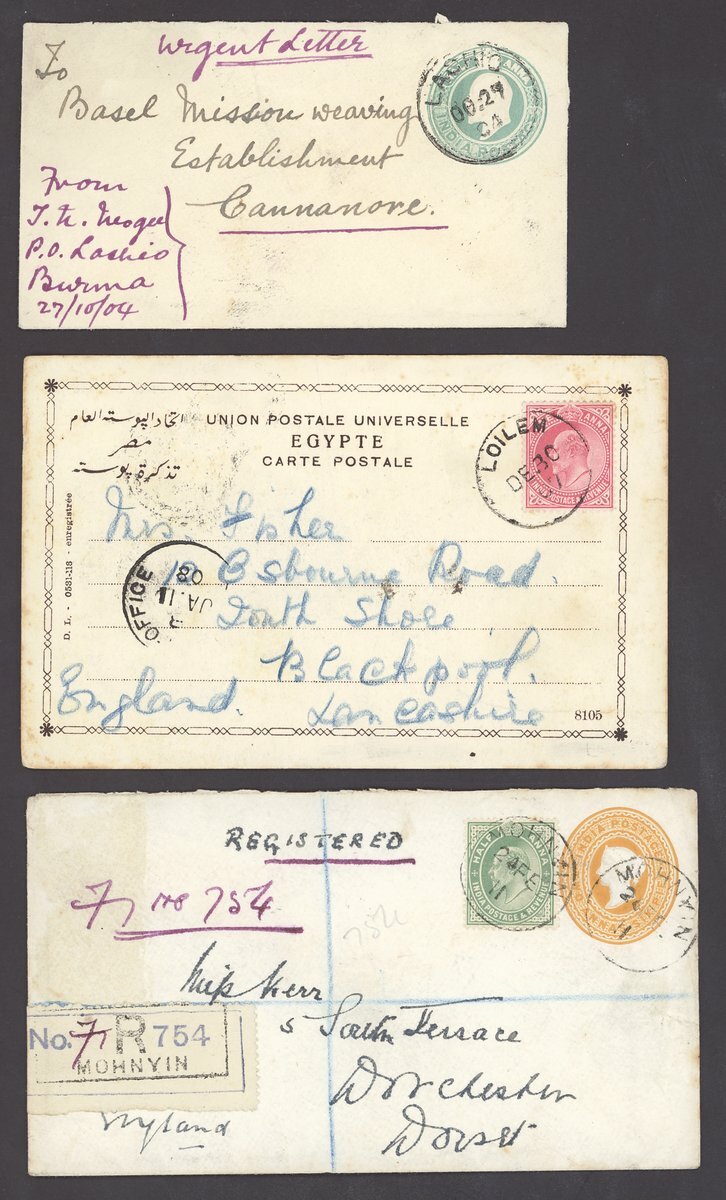 Urgent Letter
To
Basel Mission weaving
Establishment
Cannanore.
From
P.O. Lashio
Burma
27/10/04
LASHIO
OC 27
04
ANNA
INDIA POSTAGE
اتحاد البوسته العام
مصر
تذكرة بوسته
UNION POSTALE UNIVERSELLE
EGYPTE
CARTE POSTALE
ANNA
INDIA POSTAGE & REVENUE
LOILEM
DE 30
D. L. - 0531-118 - enregistrée
Mrs. Fisher
10 Osbourne Road.
South Shore
Blackpool.
England. Lancashire
OFFICE
JA. 11
08
8105
REGISTERED
No 754
754
HALF ANNA
INDIA POSTAGE & REVENUE
MOHNYIN
24 FE
11
INDIA POSTAGE
MOHNYIN
11
Miss Kerr
5 South Terrace
Dorchester
Dorset
England
No. R 754
MOHNYIN